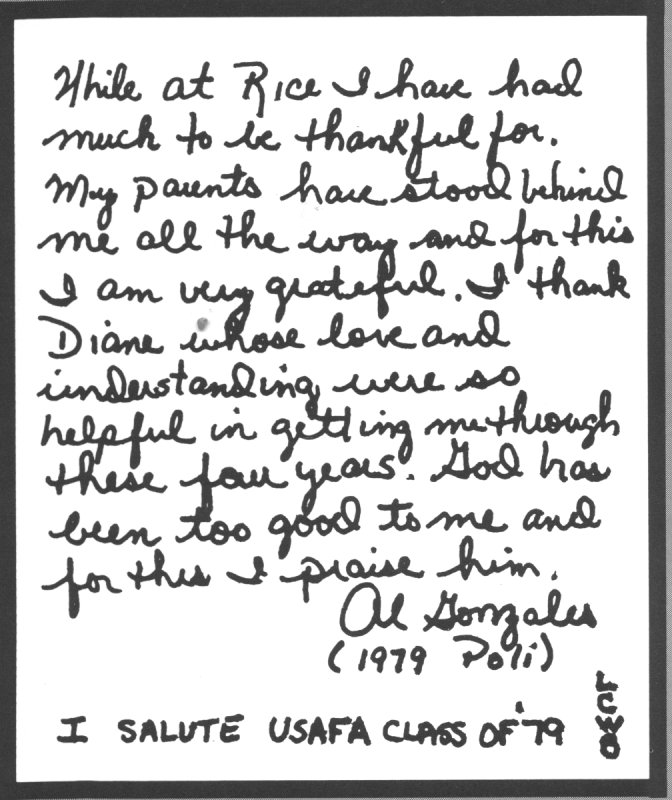 While at Rice I have had
much to be thankful for.
My parents have stood behind
me all the way and for this
I am very grateful. I thank
Diane whose love and
understanding were so
helpful in getting me through
these four years. God has
been too good to me and
for this I praise him.
Al Gonzales
(1979 Poli)
I SALUTE USAFA CLASS OF '79
LCWB